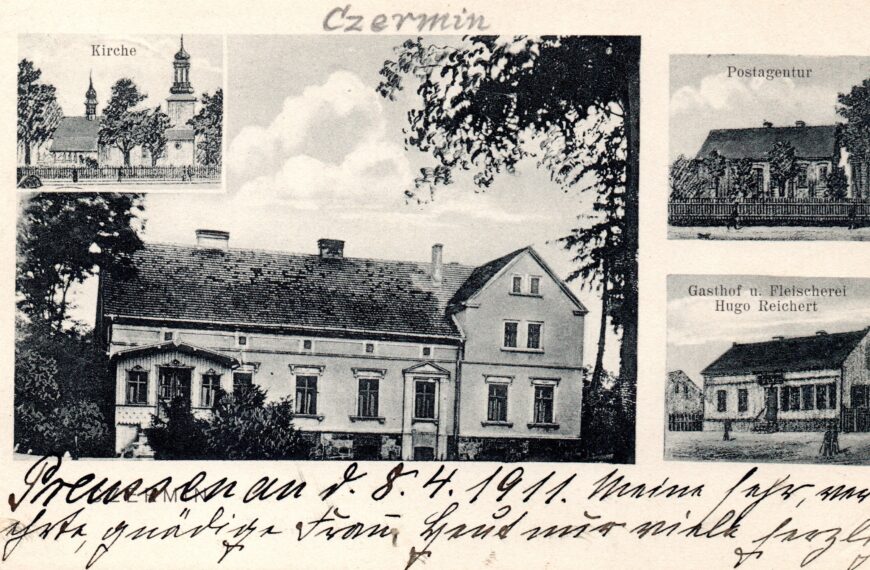 Czermin
Kirche
Postagentur
Gasthof u. Fleischerei
Hugo Reichert
CZERMIN
Preussenau d. 8. 4. 1911. Meine sehr, ver
ehrte, gnädige Frau! Heut nur viele herzl